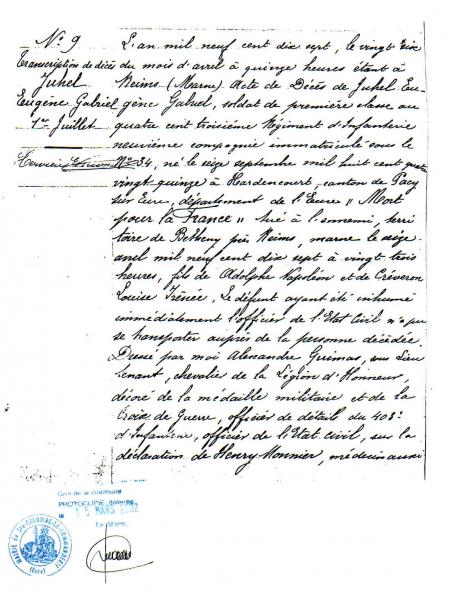 N° 9
Transcription de décès
Juhel
Eugène Gabriel
1er Juillet
L'an mil neuf cent dix sept, le vingt six
du mois d'avril à quinze heures étant à
Reims (Marne) Acte de Décès de Juhel Eu-
gène Gabriel, soldat de première classe au
quatre cent troisième Régiment d'Infanterie
neuvième compagnie immatriculé sous le
N° 34, né le seize septembre mil huit cent quatre
vingt quinze à Hardencourt, canton de Pacy
sur Eure, département de l'Eure "Mort
pour la France" tué à l'ennemi, terri
toire de Betheny près Reims, marne le seize
avril mil neuf cent dix sept à vingt trois
heures, fils de Adolphe Napoléon et de Créveron
Louise Irénée. Le défunt ayant été inhumé
immédiatement l'officier de l'Etat Civil n'a pu
se transporter auprès de la personne décédée.
Dressé par moi Alexandre Guimas, sous lieu
tenant, chevalier de la Légion d'Honneur,
décoré de la médaille militaire et de la
Croix de Guerre, officier de détails du 403e
d'Infanterie, officier de l'Etat civil, sur la
déclaration de Henry Monnier, médecin aussi
de la commune
PHOTOCOPIE
le 15 MARS 2002
Le Maire,
MAIRIE de Ste-COLOMBE-LA-COMMANDERIE
(Eure)